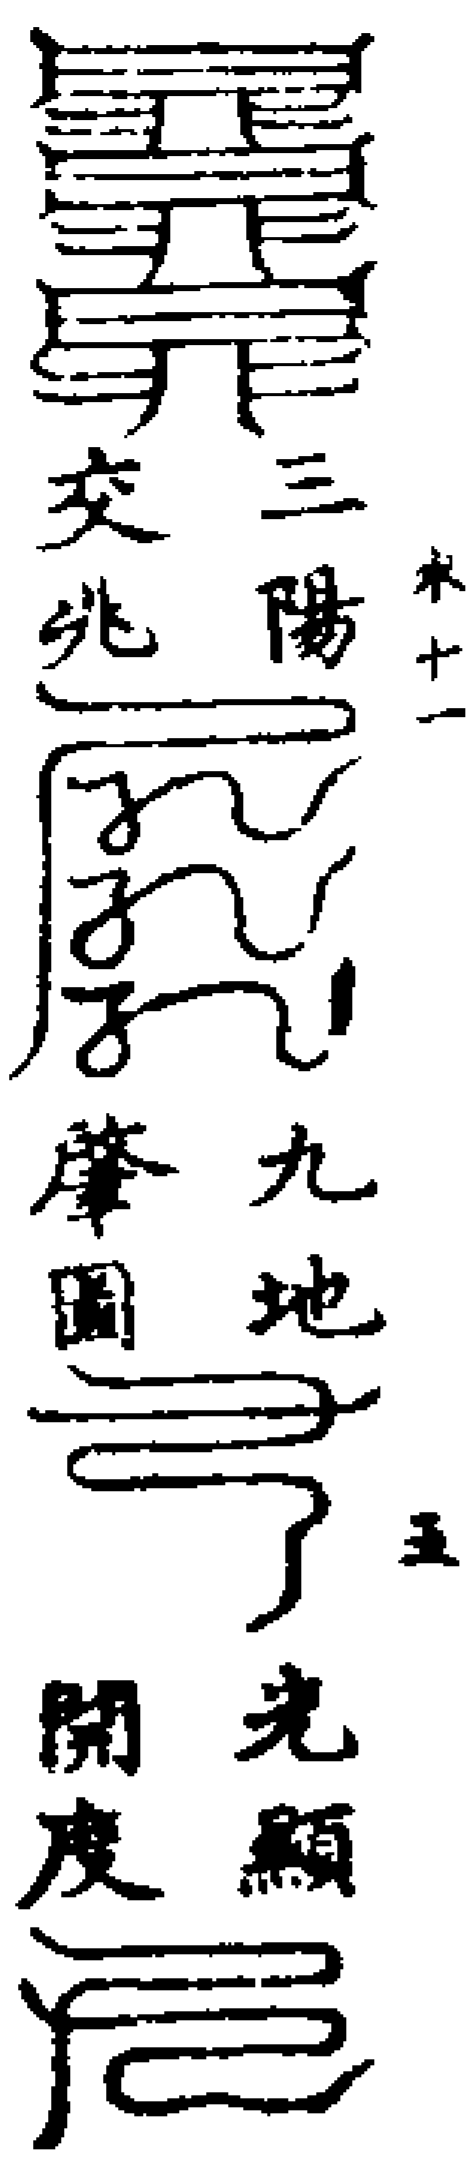 十一
五
三陽
交兆
九地
肇圖
光顯
開度